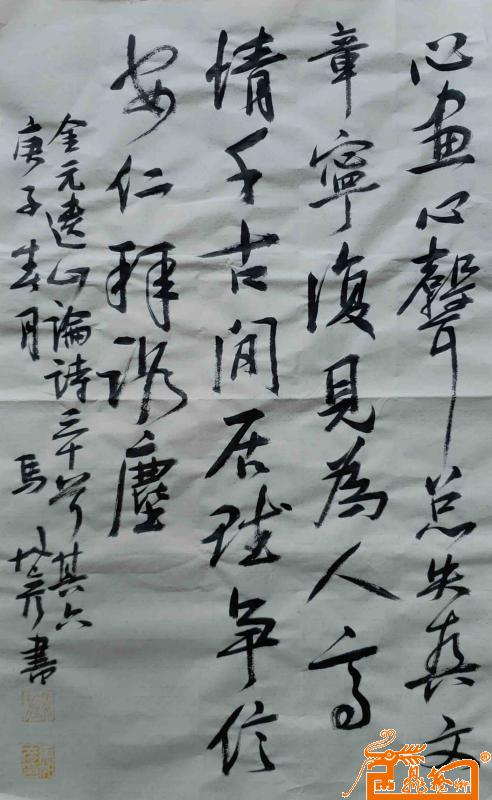 心畫心聲总失真文
章寧復見為人高
情千古間居賦争信
安仁拜路塵
金元遺山論詩三十首其六
庚子春月 馬 彦書